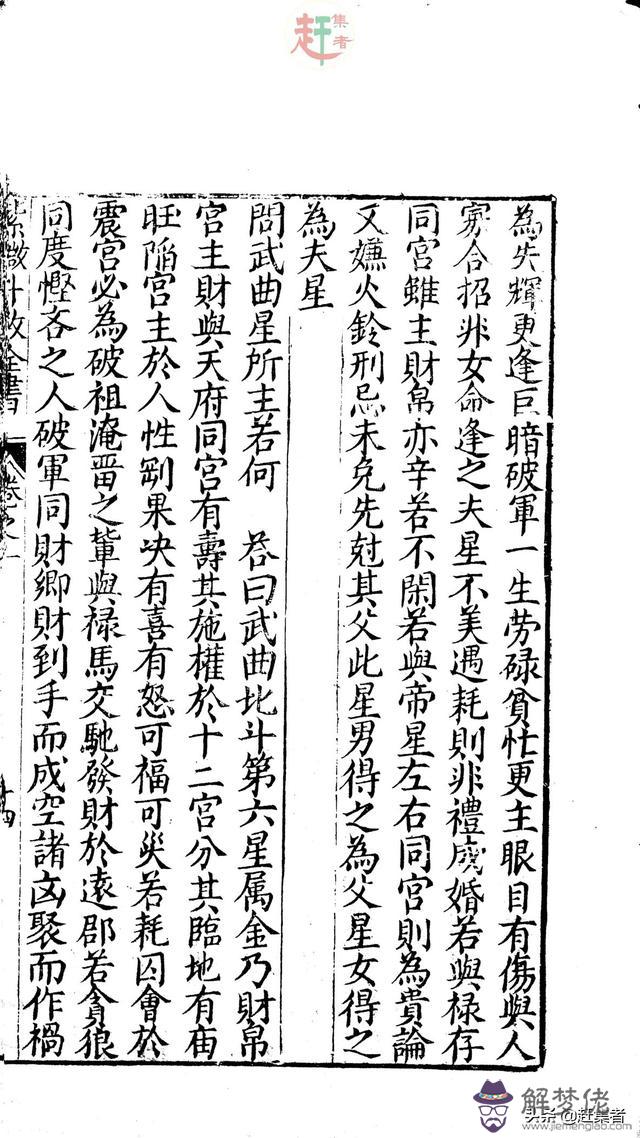 赶集者
為失輝更逢巨暗破軍一生劳碌貧忙更主眼目有傷與人
寡合招非女命逢之夫星不美遇耗則非禮成婚若與禄存
同宮雖主財帛亦辛若不閑若與帝星左右同宮則為貴論
又嫌火鈴刑忌未免先尅其父此星男得之為父星女得之
為夫星
問武曲星所主若何 答曰武曲北斗第六星属金乃財帛
宮主財與天府同宮有壽其施權於十二宮分其臨地有庙
旺陥宮主於人性剛果决有喜有怒可福可災若耗囚會於
震宮必為破祖淹畱之輩與禄馬交馳發財於遠郡若貪狼
同度慳吝之人破軍同財鄉財到手而成空諸凶聚而作禍
紫微斗数全書 卷之一
十四
解梦佬
www.jiemenglao.com
头条@赶集者